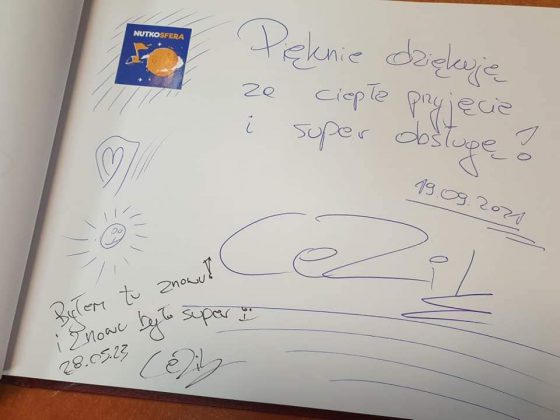 NUTKOSFERA
Pięknie dziękuję
za ciepłe przyjęcie
i super obsługę!
19.09.2021
CeZik
Byłem tu znowu!
i znowu było super :)
28.05.23
CeZik